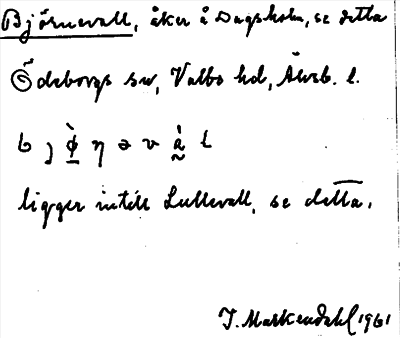 Björnevall, åker å Dagsholm, se detta
Ödeborgs sn, Valbo hd, Älvsb. l.
ligger intill Lillevall, se detta.
T. Markendahl 1961